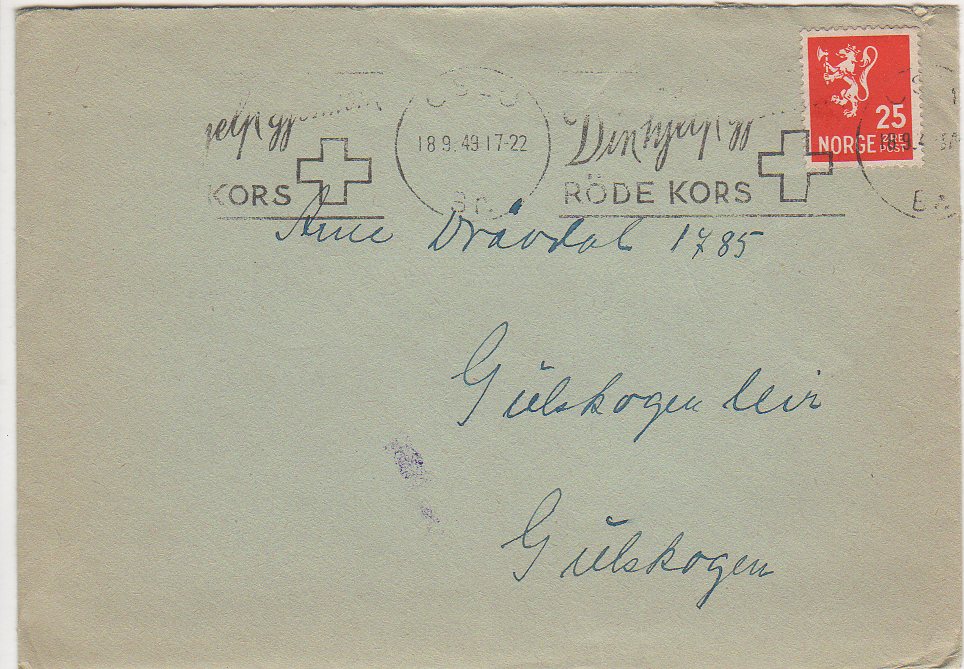 OSLO
18.9.49.17-22
Br.
Din hjelp gjennom
RÖDE KORS
KORS
25
NORGE ØRE POST
Arne Dravdal 1785
Gülskogen leir
Gülskogen